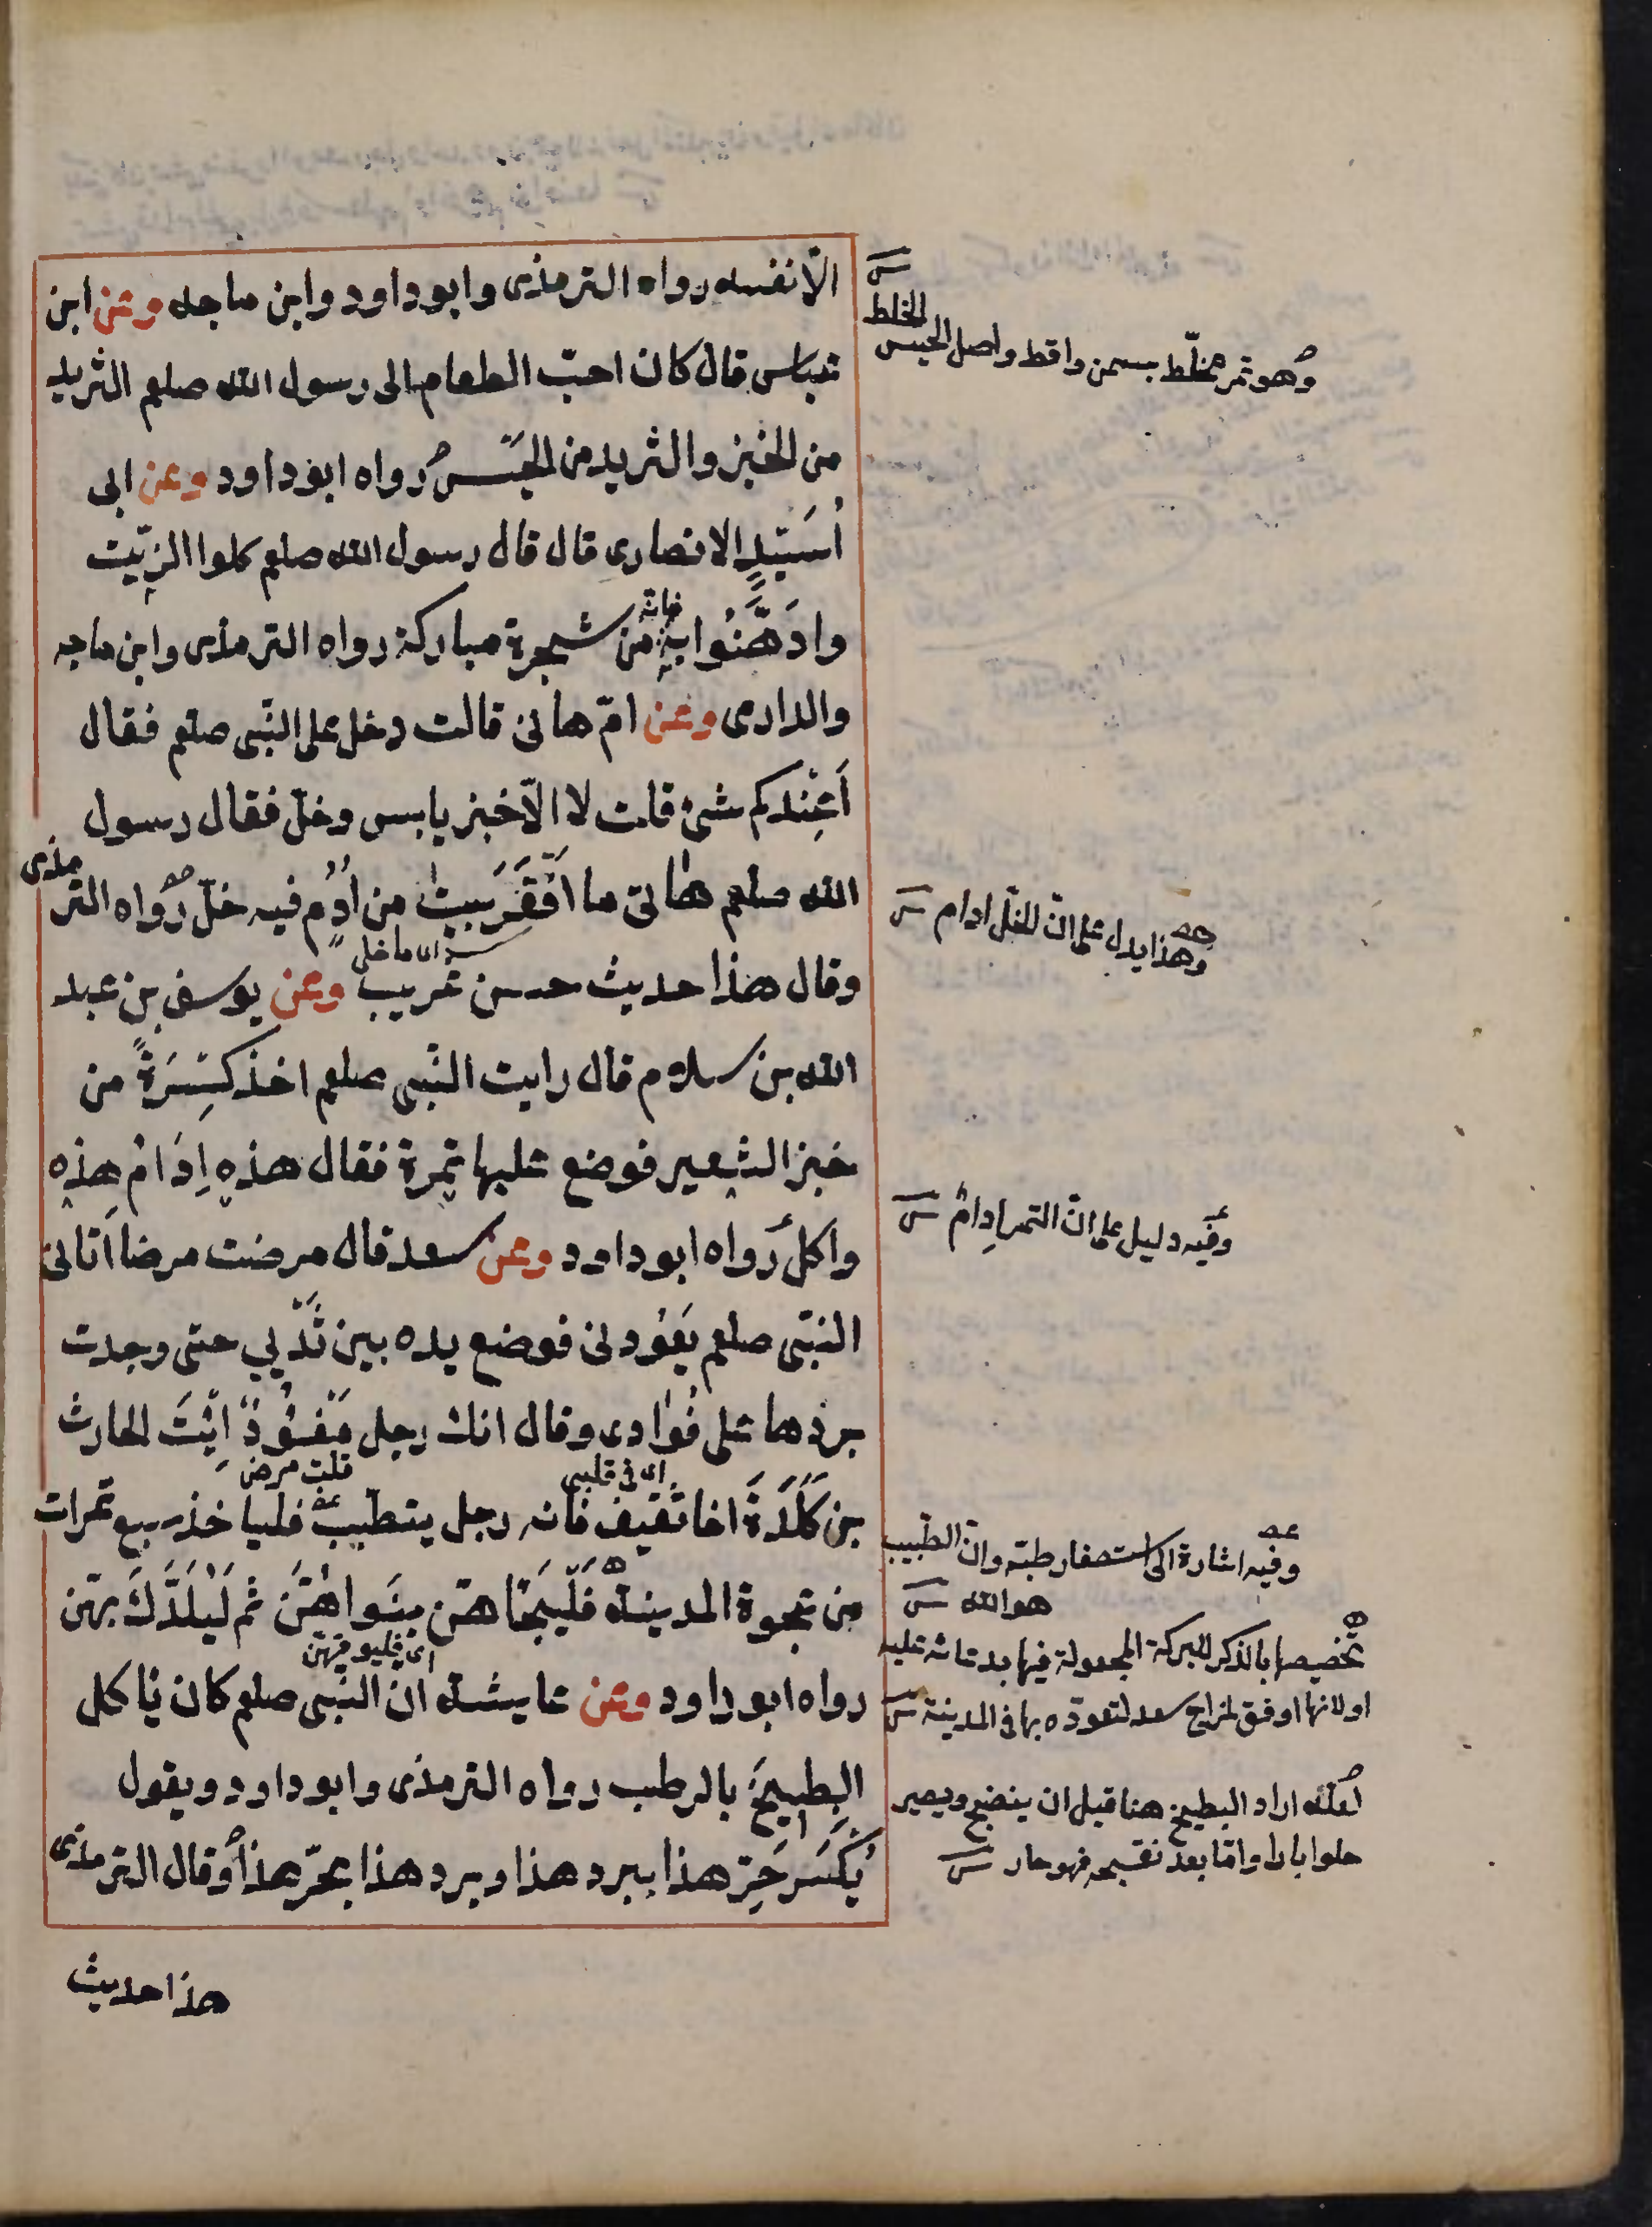 الّا نفسه رواه الترمذى وابو داود وابن ماجه وعن ابن
عباس قال كان احبّ الطعام الى رسول الله صلعم الثريد
من الخبز والثريد من الحَيْسِ رواه ابو داود وعن ابى
اُسَيْدٍ الانصارى قال قال رسول الله صلعم كلوا الزّيت
وادَّهِنُوا بِهِ فانه مِن شجرة مباركة رواه الترمذى وابن ماجه
والدارمى وعن امّ هانى قالت دخل علىّ النّبى صلعم فقال
اَعِنْدكم شىٔ قلت لا الّا خبز يابس وخلّ فقال رسول
الله صلعم هاتى ما اَقْفَرَ بيتٌ من اُدُمٍ فيه خلّ رواه الترمذى
اى ما خلى
وقال هذا حديث حسن غريب وعن يوسف بن عبد
الله بن سلام قال رايت النّبى صلعم اخذ كِسْرَةً من
خبز الشعير فوضع عليها تمرة فقال هذهِ اِدَامُ هذِه
واكل رواه ابو داود وعن سعد قال مرضت مرضا اتانى
النبّى صلعم يَعُودنى فوضع يده بين ثَدْيي حتى وجدت
بردها على فُؤادى وقال انك رجل مَفْؤُدٌ اِئْتَ الحارث
اى فى قلبى
قلت مرض
بن كَلَدَةَ اخا ثقيف فانه رجل يتطبّب فليا خذ سبع تمرات
من عجوة المدينة فَلْيَجَأْهُنّ بِنَواهُنَّ ثم لْيَلُدَّكَ بهنّ
اى فليوقهنّ
رواه ابو داود وعن عايشة ان النّبى صلعم كان يا كل
البِطِّيخَ بالرطب رواه الترمذى وابو داود ويقول
يُكْسَر حَرّ هذا ببرد هذا وبرد هذا بحرّ هذا وقال الترمذى
هذا حديث
وهو تمر يخلّط بسمن واقط واصل الحيس
الخلط
وهذا يدل على انّ الخلّ ادام
وفيه دليل على انّ التمر اِدامٌ
وفيه اشارة الى استصغار طبّه وان الطّبيب
هو الله
تخصيصها بالذكر للبركة المجعولة فيها بدعائه عليه
او لانها اوفق لمزاج سعد لتعوّده بها فى المدينة
لعلّه اراد البطيخ هنا قبل ان ينضج ويصير
حلوا بارد وامّا بعد نضجه فهو حار